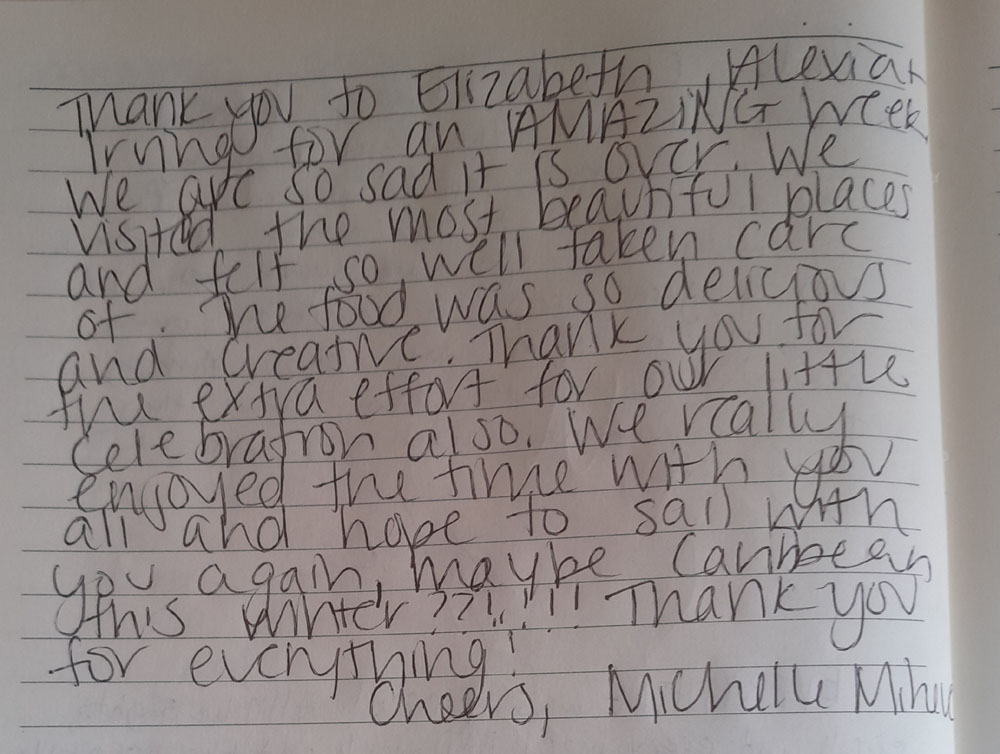 Thank you to Elizabeth, Alexia +
Irving for an AMAZING week
We are so sad it is over. We
visited the most beautiful places
and felt so well taken care
of. The food was so delicious
and creative. Thank you for
the extra effort for our little
celebration also. We really
enjoyed the time with you
all and hope to sail with
you again, maybe Caribbean
this winter??!!!! Thank you
for everything!
Cheers, Michelle